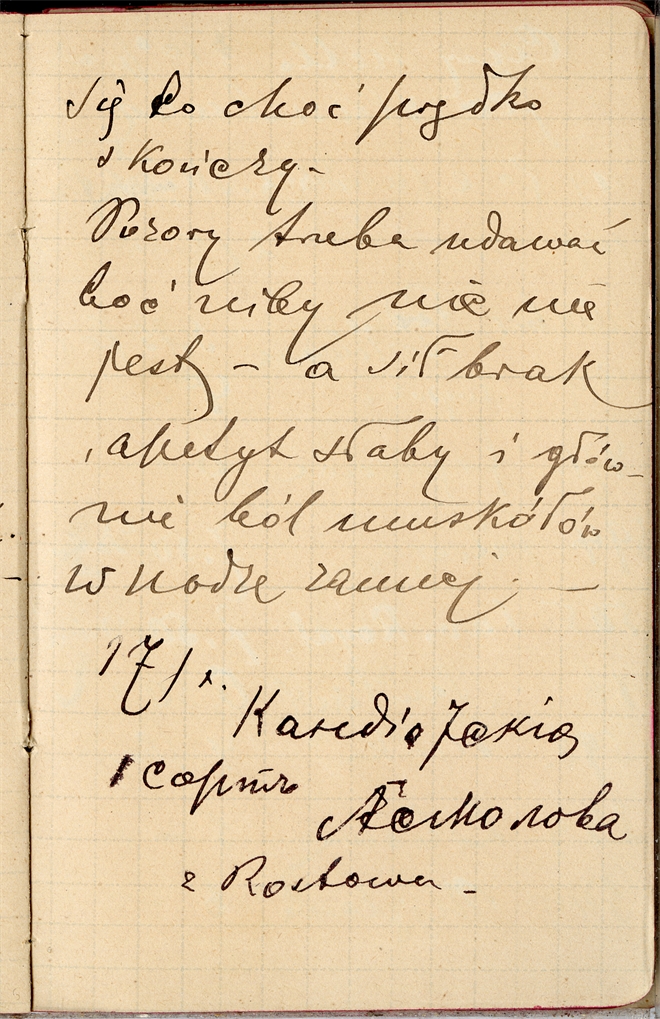 się to choć prędko
skończy.
Pozory trzeba udawać
boć niby nic nie
jest, – a sił brak
, apetyt słaby i głów-
nie ból muskółów
w nodze rannej. –
17/X.
1 сортъ
Асмолова
z Rostowa –